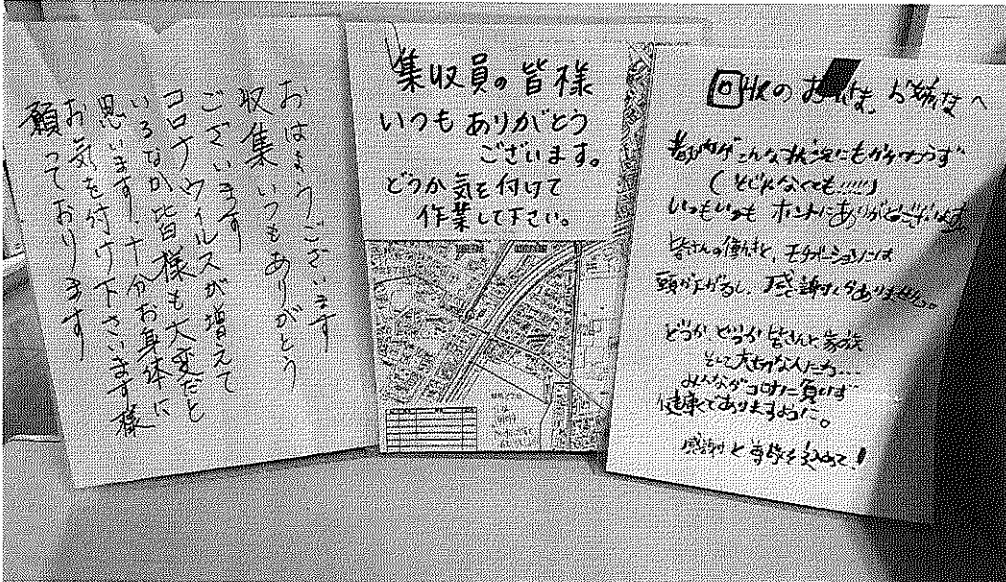 おはようございます
収集いつもありがとう
ございます
コロナウィルスが増えて
いるなか皆様も大変だと
思います。十分お身体に
お気を付け下さいます様
願っております
集収員の皆様
いつもありがとう
ございます。
どうか気を付けて
作業して下さい。
のお兄さま、お姉さまへ
都内がこんな状況にもかかわらず
いつもいつもホントにありがとうございます。
皆さんの働きと、モチベーションには
頭が下がるし、感謝しかありません。
どうか、どうか皆さんと家族
そして大切な人たち...
みんながコロナに負けず
健康でありますように。
感謝と尊敬を込めて!